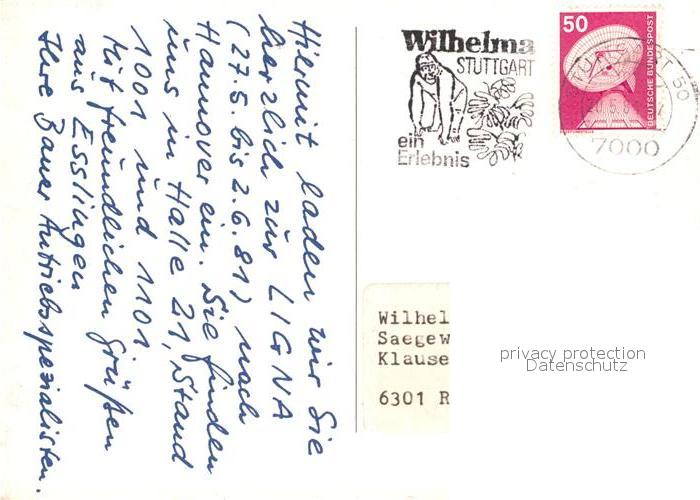 Hiermit laden wir Sie
herzlich zur LIGNA
(27.5. bis 2.6.81) nach
Hannover ein. Sie finden
uns in Halle 21, Stand
1001 und 1101
Mit freundlichen Grüßen
aus Esslingen
Ihre Bauer Antriebsspezialisten.
Wilhelma
STUTTGART
ein
Erlebnis
50
DEUTSCHE BUNDESPOST
7000
Wilhel
Saegew
Klause
6301 R
privacy protection
Datenschutz